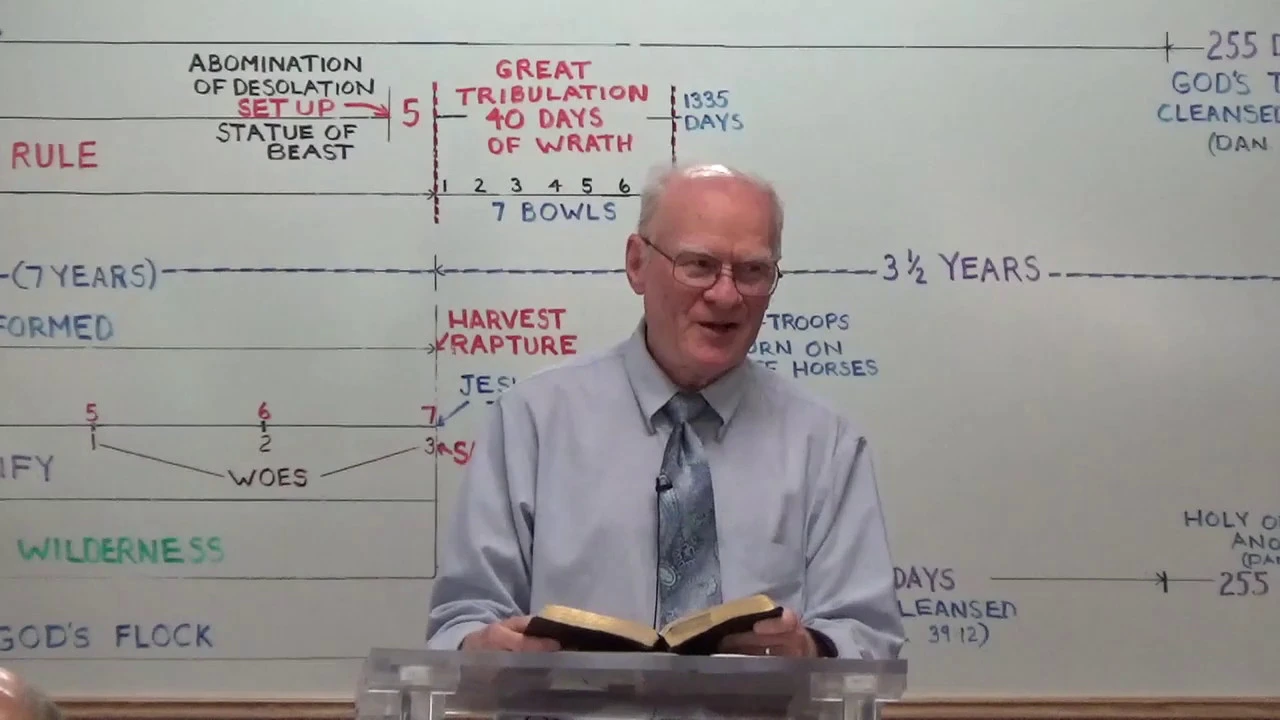 ABOMINATION
OF DESOLATION
SET UP
STATUE OF
BEAST
5
GREAT
TRIBULATION
40 DAYS
OF WRATH
1335
DAYS
255 D
GOD'S T
CLEANSED
(DAN
RULE
1 2 3 4 5 6
7 BOWLS
-(7 YEARS)
3 ½ YEARS
FORMED
HARVEST
RAPTURE
-TROOPS
ORN ON
HORSES
JES
5 6 7
1 2 3
WOES
IFY
WILDERNESS
HOLY O
ANO
(DA
255
DAYS
LEANSED
39 12)
GOD'S FLOCK